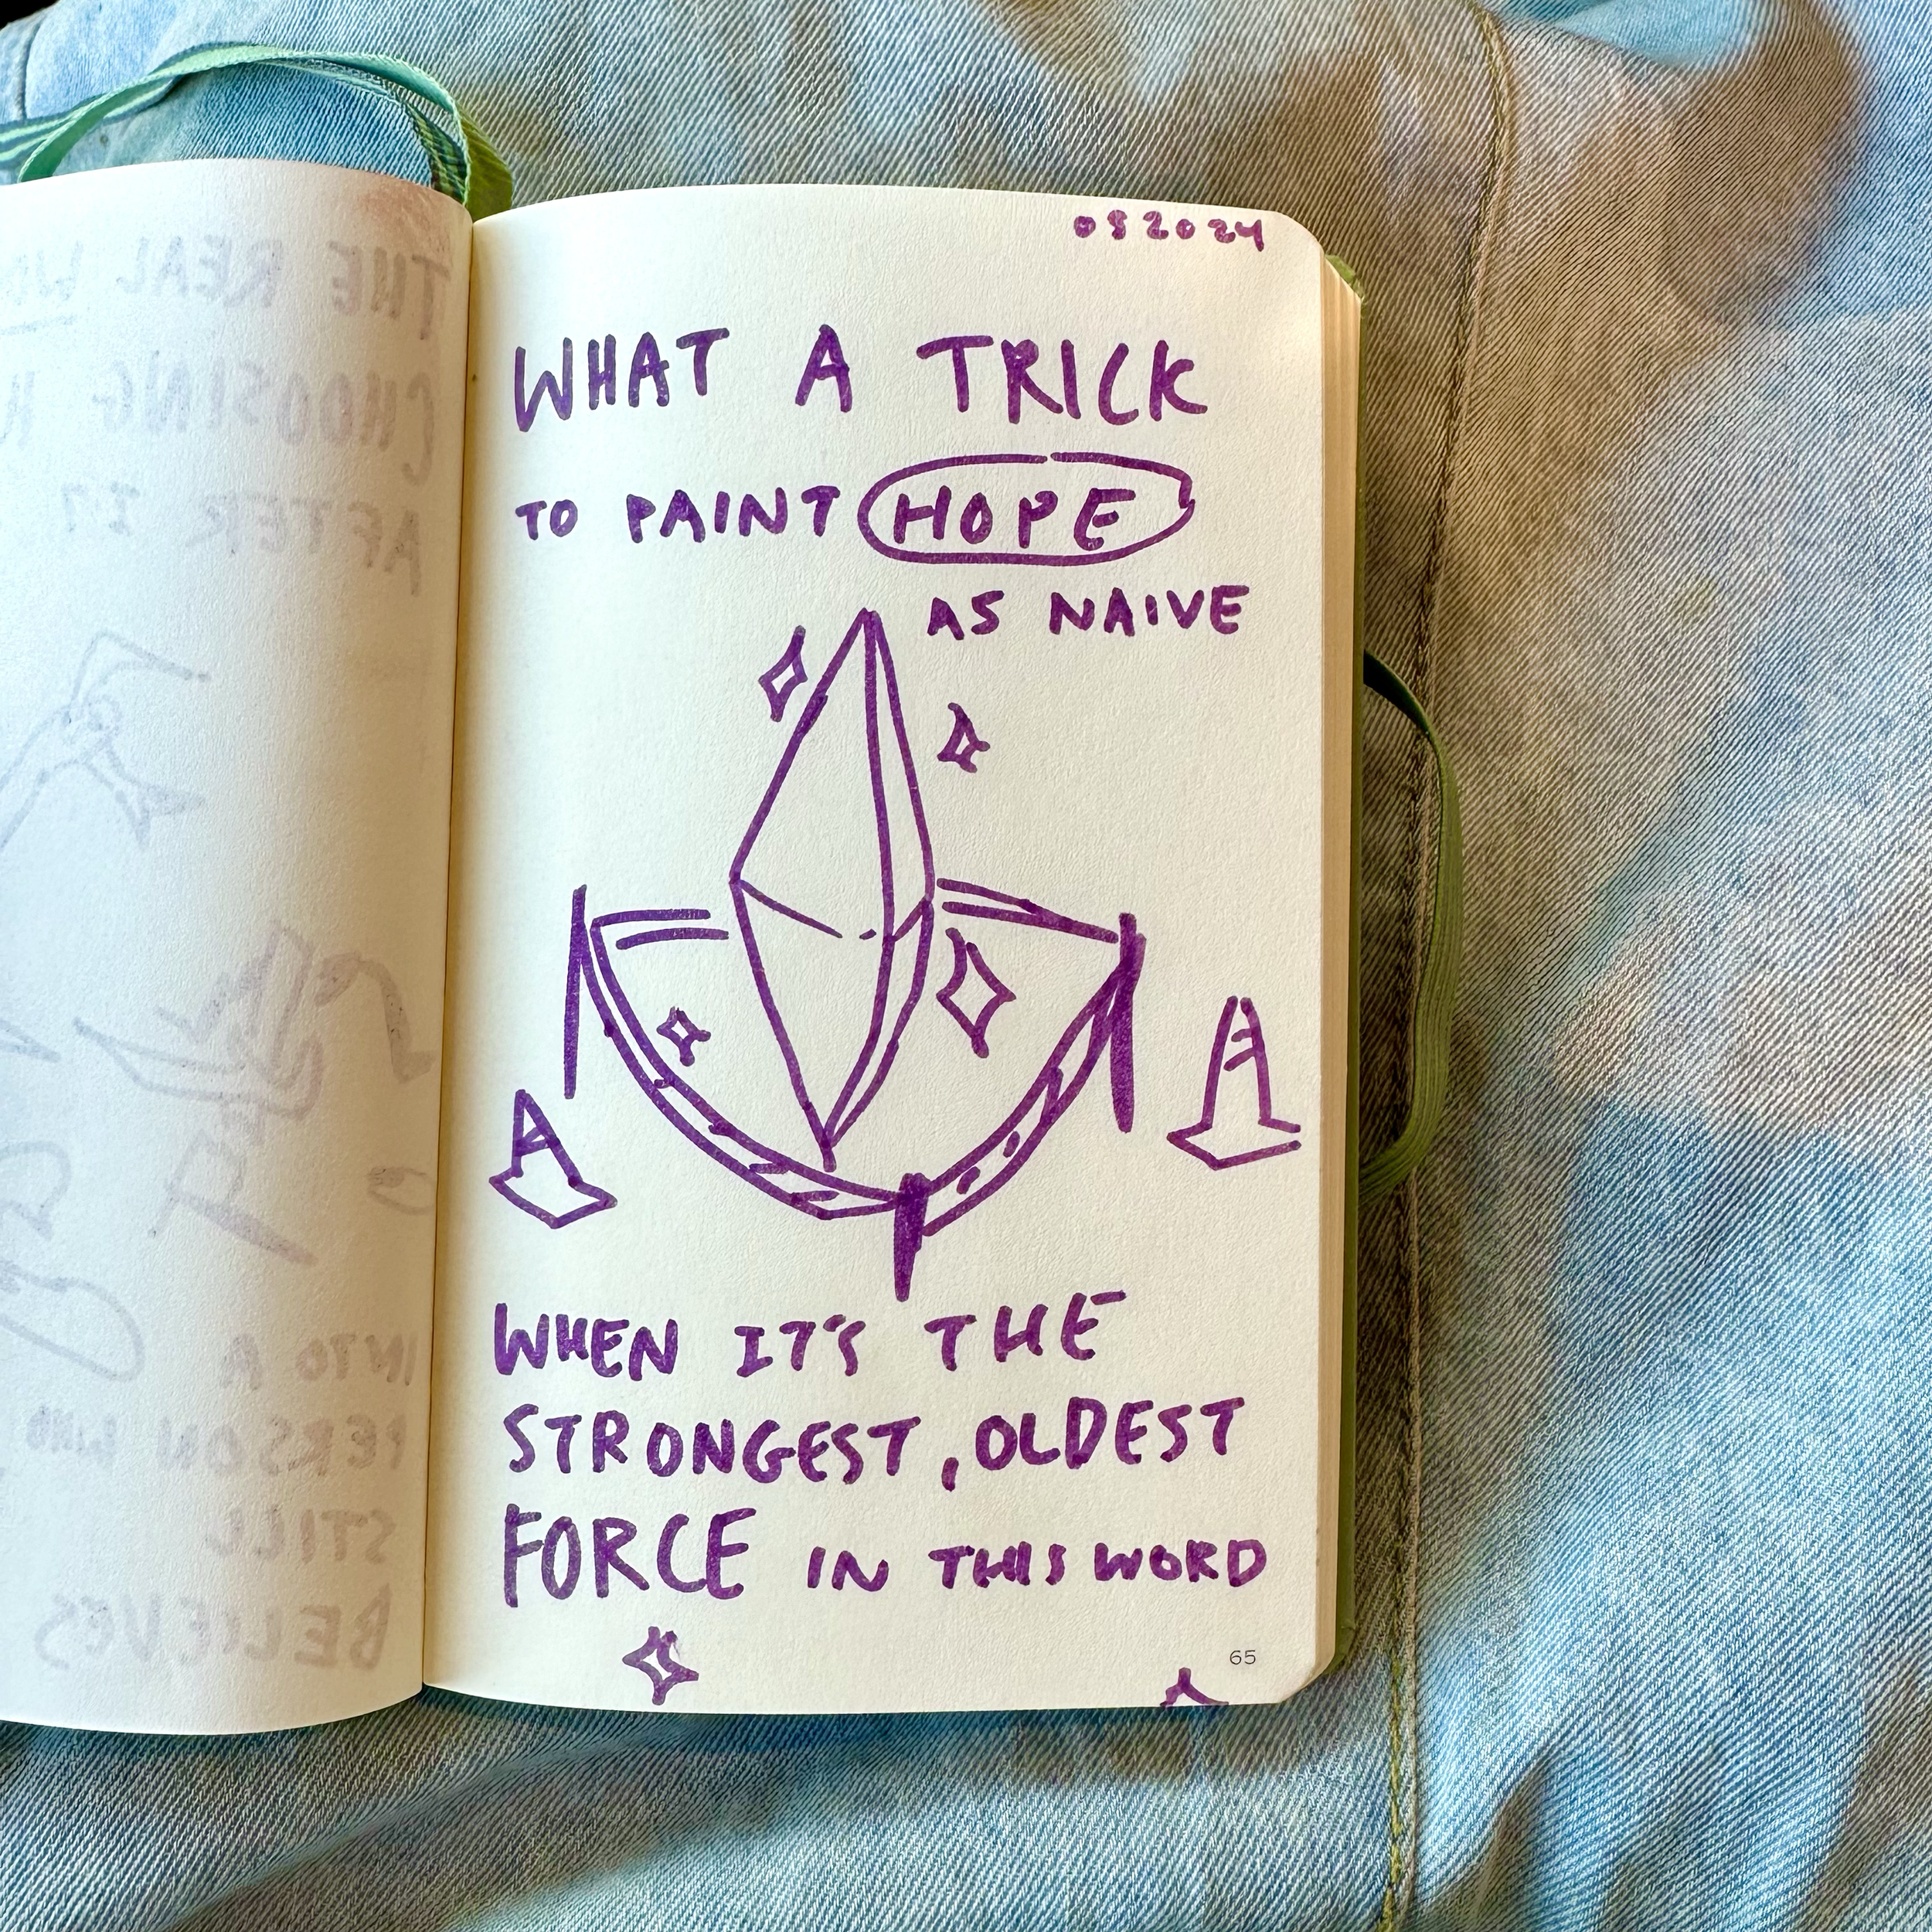 THE REAL
CHOOSING
AFTER IT
INTO A
PERSON WHO
STILL
BELIEVES
082024
WHAT A TRICK
TO PAINT HOPE
AS NAIVE
WHEN IT'S THE
STRONGEST, OLDEST
FORCE IN THIS WORD
65